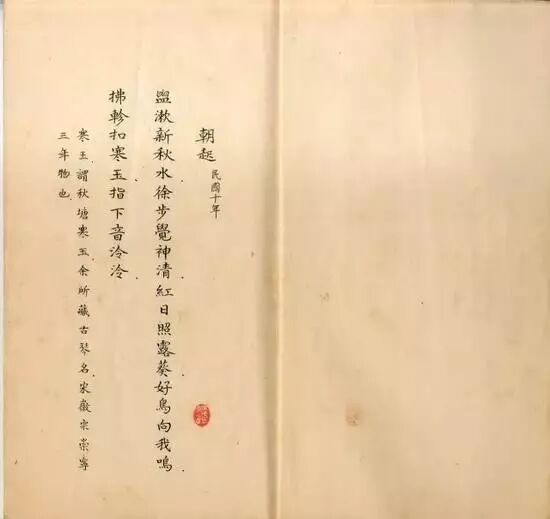 朝起 民國十年
盥漱新秋水徐步覺神清紅日照露葵好鳥向我鳴
拂軫扣寒玉指下音泠泠
寒玉謂秋塘寒玉余所藏古琴名宋徽宗崇寧
三年物也